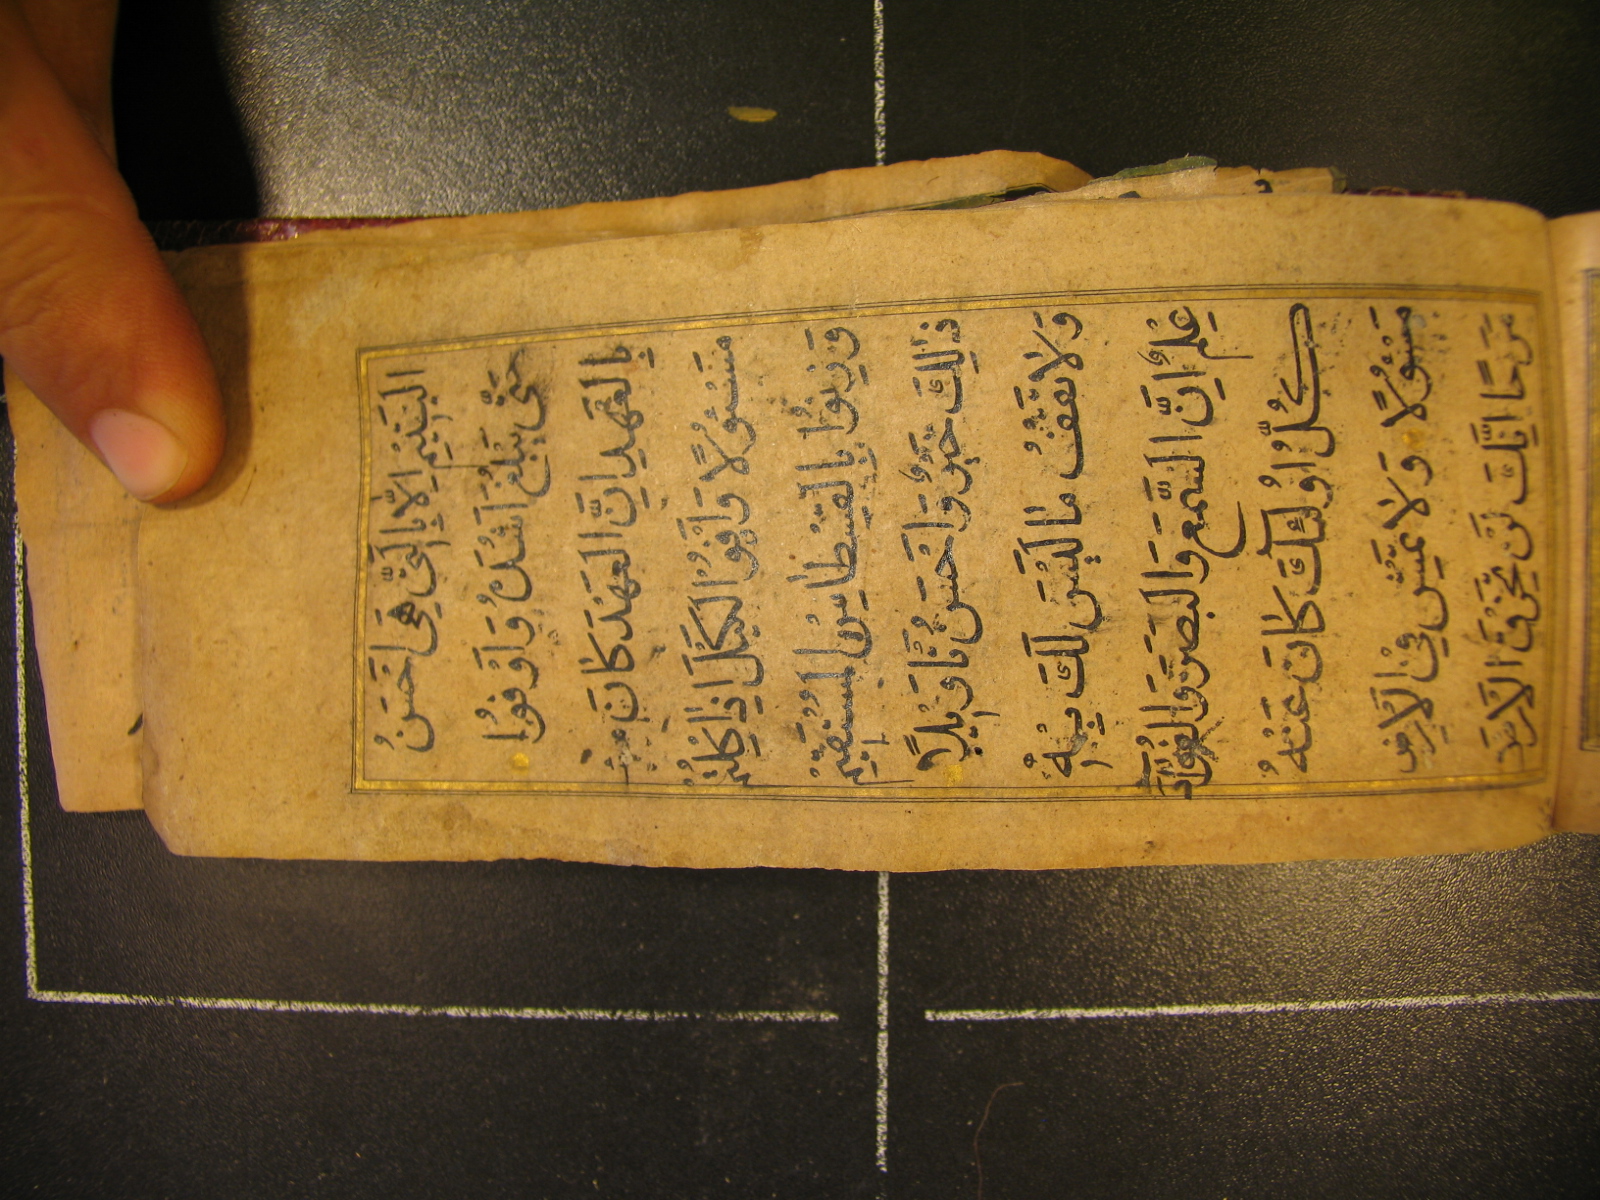 الْيَتِيْمِ اِلَّا بِالَّتِيْ هِيَ اَحْسَنُ
حَتّٰى يَبْلُغَ اَشُدَّهُ وَاَوْفُوْا
بِالْعَهْدِ اِنَّ الْعَهْدَ كَانَ
مَسْئُوْلًا وَاَوْفُوا الْكَيْلَ اِذَا كِلْتُمْ
وَزِنُوْا بِالْقِسْطَاسِ الْمُسْتَقِيْمِ
ذٰلِكَ خَيْرٌ وَّاَحْسَنُ تَاْوِيْلًا
وَلَا تَقْفُ مَا لَيْسَ لَكَ بِهٖ
عِلْمٌ اِنَّ السَّمْعَ وَالْبَصَرَ وَالْفُؤَادَ
كُلُّ اُولٰئِكَ كَانَ عَنْهُ
مَسْئُوْلًا وَلَا تَمْشِ فِي الْاَرْضِ
مَرَحًا اِنَّكَ لَنْ تَخْرِقَ الْاَرْضَ